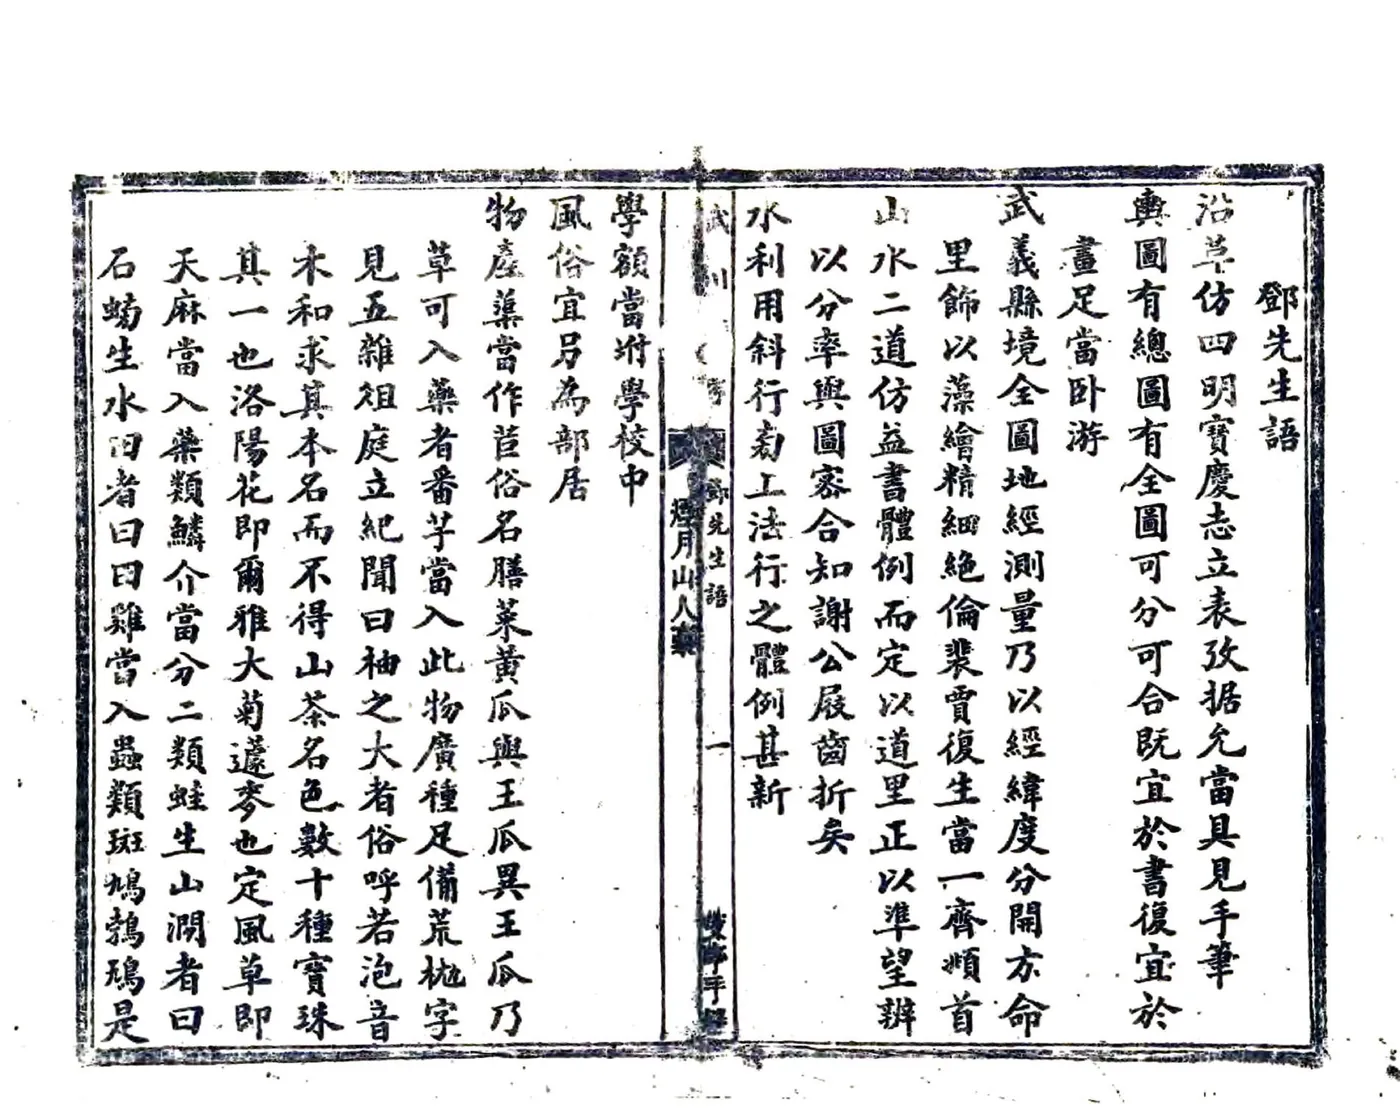 鄧先生語
沿革仿四明寶慶志立表攷据允當具見手筆
輿圖有總圖有全圖可分可合既宜於書復宜於
畫足當卧游
武義縣境全圖地經測量乃以經緯度分開方命
里飾以藻繪精細絶倫裴賈復生當一齊頫首
山水二道仿益書體例而定以道里正以準望辨
以分率與圖密合知謝公屐齒折矣
水利用斜行旁上法行之體例甚新
武川
鄧先生語
一
月山人
學額當坿學校中
風俗宜另為部居
物產蕖當作苣俗名膳菜黃瓜與王瓜異王瓜乃
草可入藥者番芋當入此物廣種足備荒枇字
見五雜俎庭立紀聞曰柚之大者俗呼若泡音
木和求其本名而不得山茶名色數十種寶珠
其一也洛陽花即爾雅大菊蘧麥也定風草即
天麻當入藥類鱗介當分二類蛙生山澗者曰
石蜐生水田者曰田雞當入蟲類斑鳩鵓鴣是